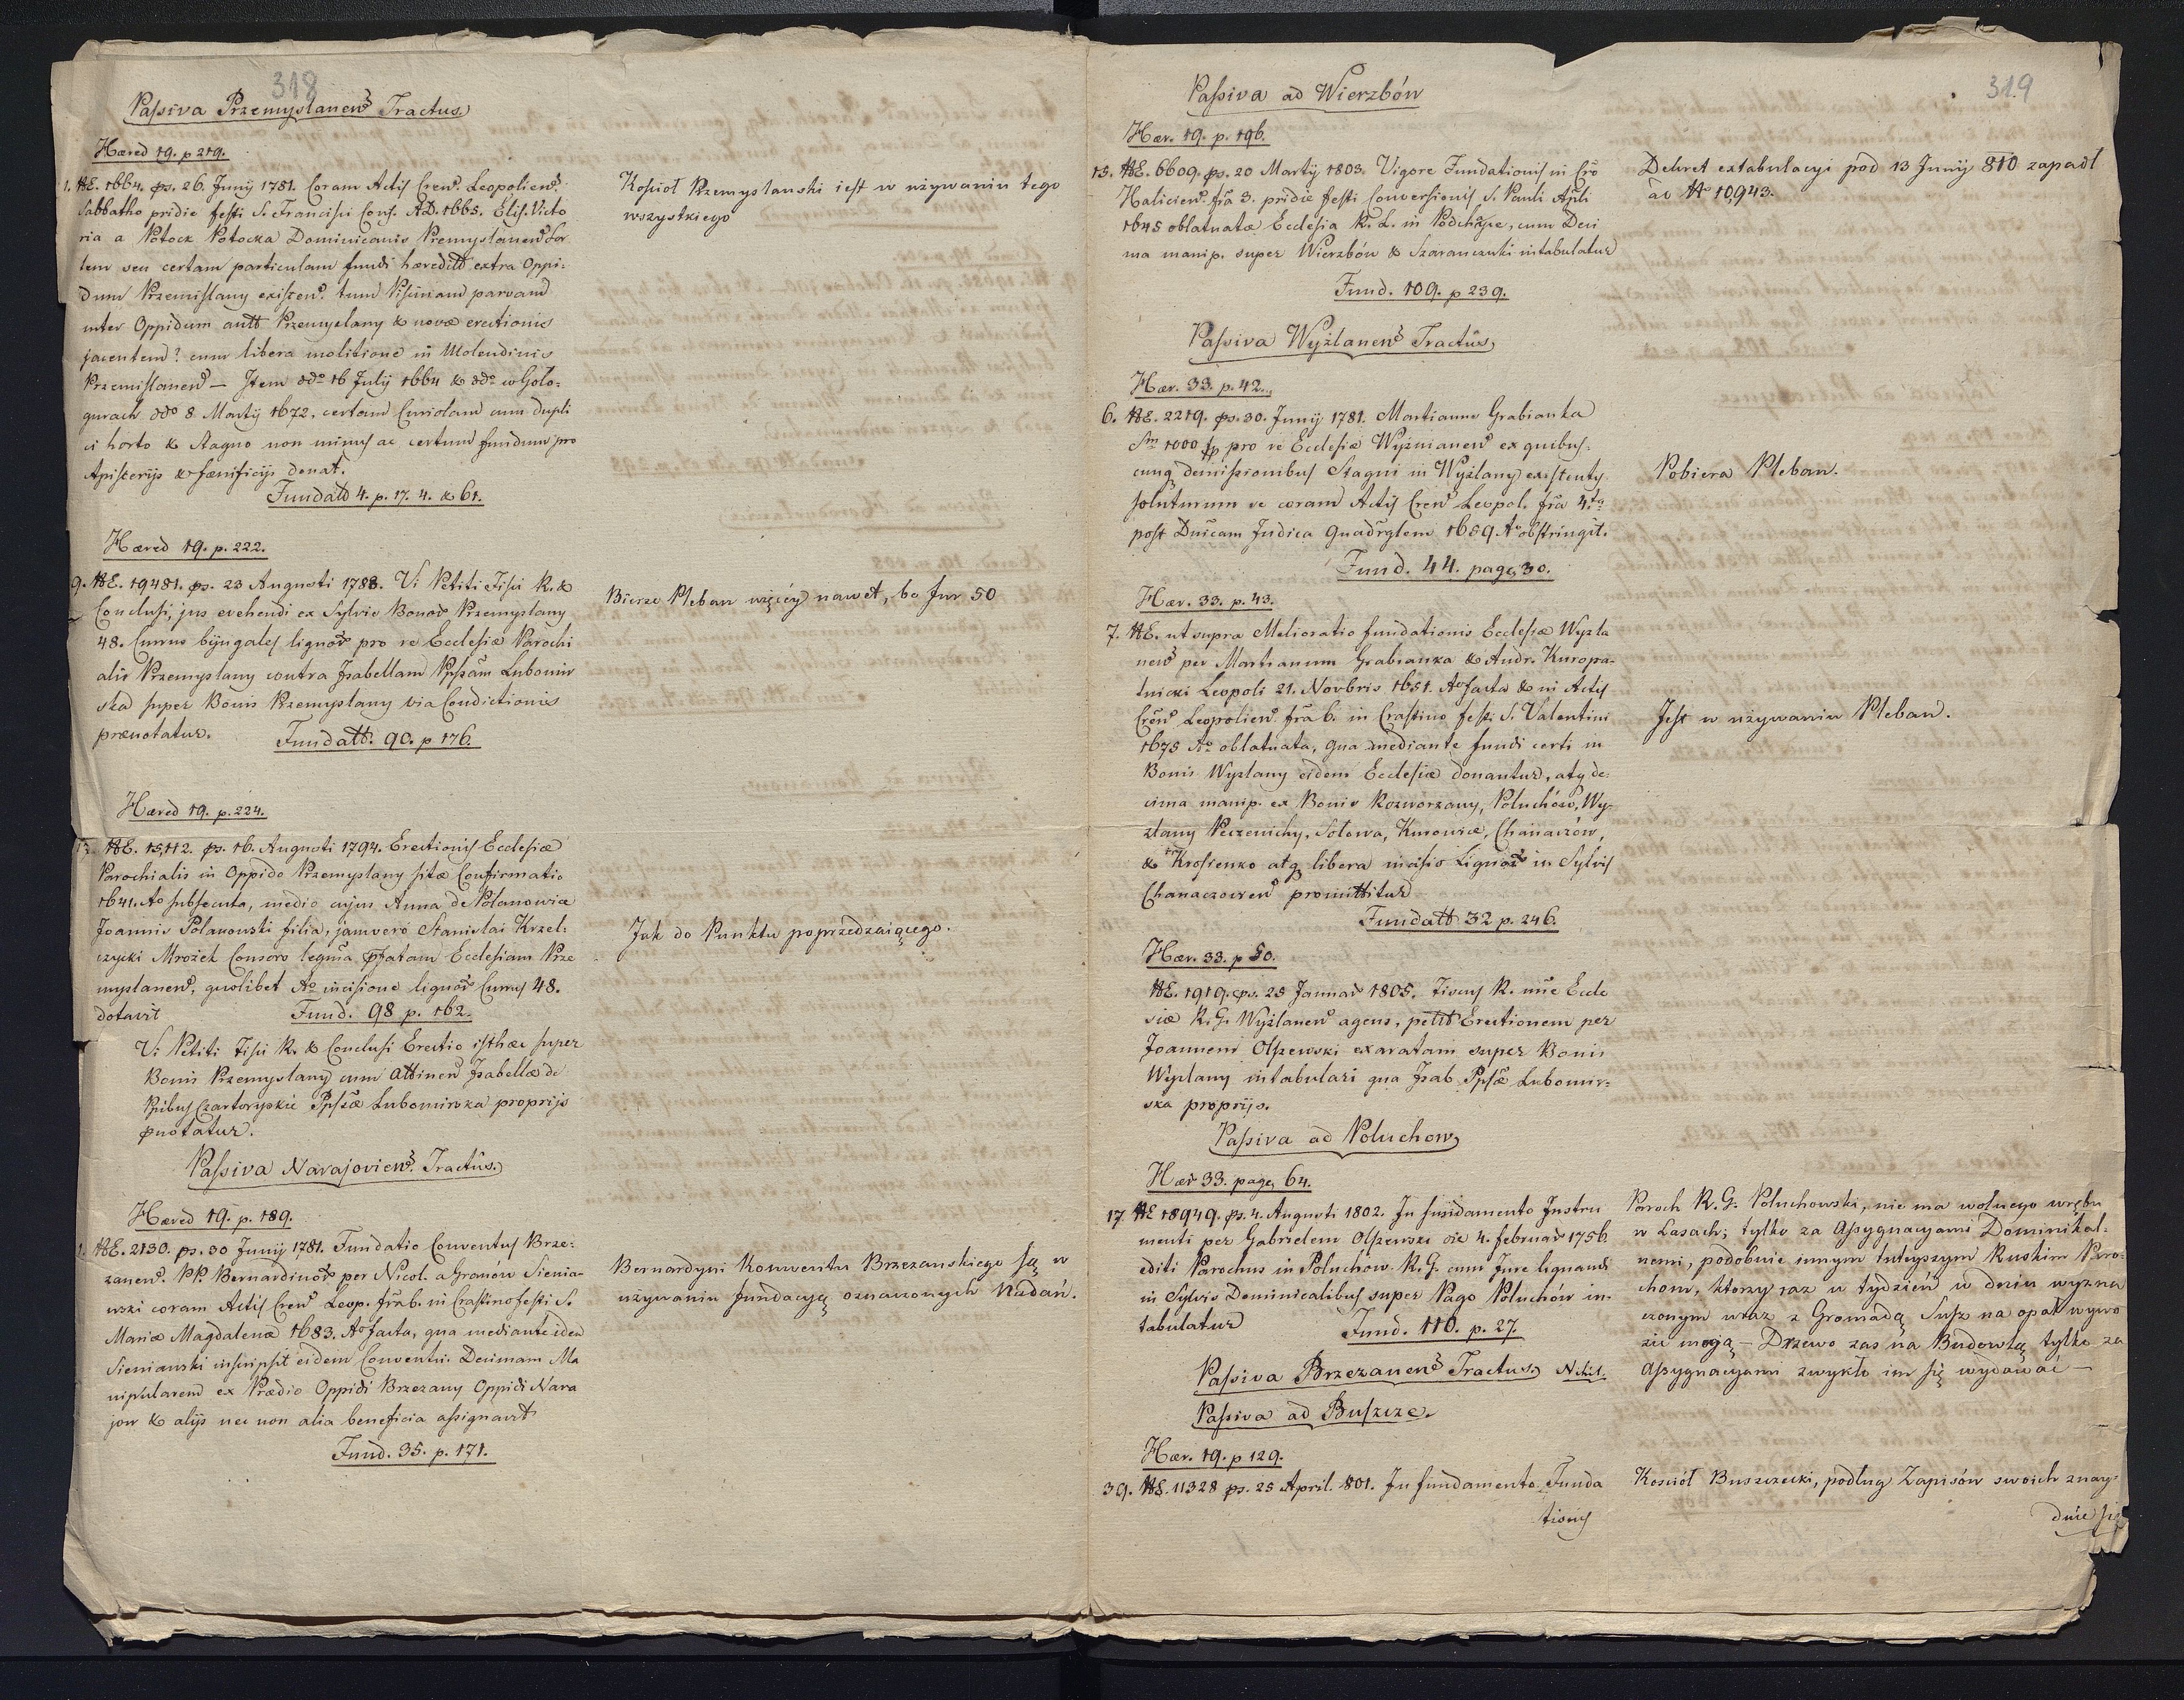 318
Passiva Przemyslanens Tractus
Hæred 19. p 219.
1. NE. 1664. ps. 26. Junÿ 1781. Coram Actis Cren. Leopolien.
Sabbatho pridie festi S. Francisci Conf. AD. 1665. Elis. Victo
ria a Potock Potocka Dominicanis Premyslanen
tem seu certam particulam fundi hæredit extra Oppi:
dum Przemislany existen. tum Piscinam parvam
inter Oppidum antt Przemyslany & novæ erectionis
jacentem? cum libera molitione in Molendinis
Przemislanen – Item ddo 16 July 1664 & ddo w Goło:
gurach ddo 8 Martÿ 1672. certam Curiolam cum dupli
ci horto & Stagno non minus ac certum fundum pro
Apisterÿs & fænificÿs donat.
Fundatt 4. p. 17. 4. & 61.
Kościoł Przemyslanski iest w używaniu tego
wszystkiego
Hæred 19. p. 222.
9. NE. 19481. ps. 23 Augusti 1788. Vi Petiti Fisci R. &
Conclusi, jus evehendi ex Sylvis Bonor Przemyslany
48. Currus bijugales lignor pro re Ecclesiæ Parochi
alis Przemyslany contra Isabellam Ppssam Lubomir
ska super Bonis Przemyslany via Condictionis
prænotatur.
Fundatt. 90. p 176.
Bierze Pleban więcéy nawet, bo fur 50
Hæred 19. p. 224.
NE. 15,112. ps. 16. Augusti 1794. Erectionis Ecclesiæ
Parochialis in Oppido Przemyslany sitæ Confirmatio
1641. Ao subsecuta, medio cujus Anna de Polanowice
Joannis Polanowski filia, jamvero Stanislai Krzel:
czycki Mrożek Consors legma pfatam Ecclesiam Prze
myslanen, quolibet Ao incisione lignor Currus 48.
dotavit
Fund. 98 p. 162.
Vi Petiti Fisci R. & Conclusi Erectio isthæc super
Bonis Przemyslany cum Attinen Isabellæ de
Ppibus Czartoryskie Ppssæ Lubomirska proprijs
pnotatur.
Jak do Punktu poprzedzaiącego.
Passiva Narajoviens. Tractûs.
Hæred 19. p. 189.
1. NE. 2130. ps. 30 Junÿ 1781. Fundatio Conventus Brze:
zanen. PP. Bernardinor per Nicol. a Granów Sienia-
wski coram Actis Cren Leop. fra 6. in Crastino festi S.
Mariæ Magdalenæ 1683. Ao facta, qua mediante idem
Sieniawski inscripsit eidem Conventui Decimam Ma
nipularem ex Prædio Oppidi Brzezany Oppidi Nara
jow & alÿs nec non alia beneficia assignavit
Fund. 35. p. 171.
Bernardyni Konwentu Brzezanskiego są w
używaniu fundacyą oznaczonych Nadań.
319
Passiva ad Wierzbów
Hær. 19. p. 196.
15. NE. 6609. ps. 20 Martÿ 1803. Vigore Fundationis in Cro
Halicien fra 3. pridie festi Conversionis S. Pauli Apli
1645 oblatuatæ Ecclesia R. L. in Podchayce, cum Deci
ma manip. super Wierzbów & Szaranczuki intabulatur
Fund. 109. p 239.
Dekret extabulacyi pod 13 Junÿ 810 zapadł
ad N 10,943.
Passiva Wyżlanens Tractûs
Hær. 33. p. 42.
6. NE. 2219. ps. 30. Junÿ 1781. Martianus Grabianka
Sm 1000 fp pro re Ecclesiæ Wyżnianen ex quibus:
cunq demissionibus Stagni in Wyżlany existentis
soluturum se coram Actis Cren Leopol. fra 4.ta
post Dnicam Judica Quadrglem 1659. Ao obstringit.
Fund. 44. page 30.
Pobiera Pleban.
Hær. 33. p. 43.
7. NE. ut supra Melioratio fundationis Ecclesiæ Wyzla
nens per Martianum Grabianka & Andr. Kuropa-
tnicki Leopoli 21. Novbris 1651. Ao facta & in Actis
Cren Leopolien fra 6. in Crastino fest. S. Valentini
1675 Ao oblatuata, qua mediante fundi certi in
Bonis Wyzlany eidem Ecclesiæ donantur, atq de:
cima manip. ex Bonis Rozworzany, Poluchów, Wy-
zlany Peczenichy, Solowa, Kurowice, Chanaczów,
& Krosienko atq libera incisio Lignor in Sylvis
Chanaczowen promittitur
Fundatt 32 p. 246.
Jest w używaniu Pleban.
Hær. 33. p 50.
NE. 1919. ps. 25 Januar 1805. Fiscus R. nne Eccle
siæ R. G. Wyżlanen agens, petit Erectionem per
Joannem Olszewski exaratam super Bonis
Wyzlany intabulari qua Isab Ppssæ Lubomir:
ska proprijs.
Passiva ad Poluchow
Hær 33. page 64.
17 NE 18949. ps. 4. Augusti 1802. In fundamento Instru
menti per Gabrielem Olszewski die 4. februar 1756.
editi Parochus in Poluchow R. G. cum Jure lignandi
in Sylvis Dominicalibus super Pago Poluchów in-
tabulatur
Fund. 110. p. 27.
Paroch R. G. Poluchowski, nie ma wolnego wrębu
w Lasach; tylko za Assygnacyami Dominikal-
nemi, podobnie innym tuteyszym Ruskim Paro-
chom, ktorzy raz w tydzień w dniu wyzna
czonym wraz z Gromadą Susz na opał wywo
zić mogą – Drzewo zas na Budowlą tylko za
Assygnacyami zwykło im się wydawać –
Passiva Brzezanens Tractus. Nihil.
Passiva ad Buszcze.
Hær. 19. p 129.
39. NE. 11328 ps. 25 April. 801. In fundamento Funda
tionis
Kosciół Buszczecki, podług Zapisów swoich znay-
duie się